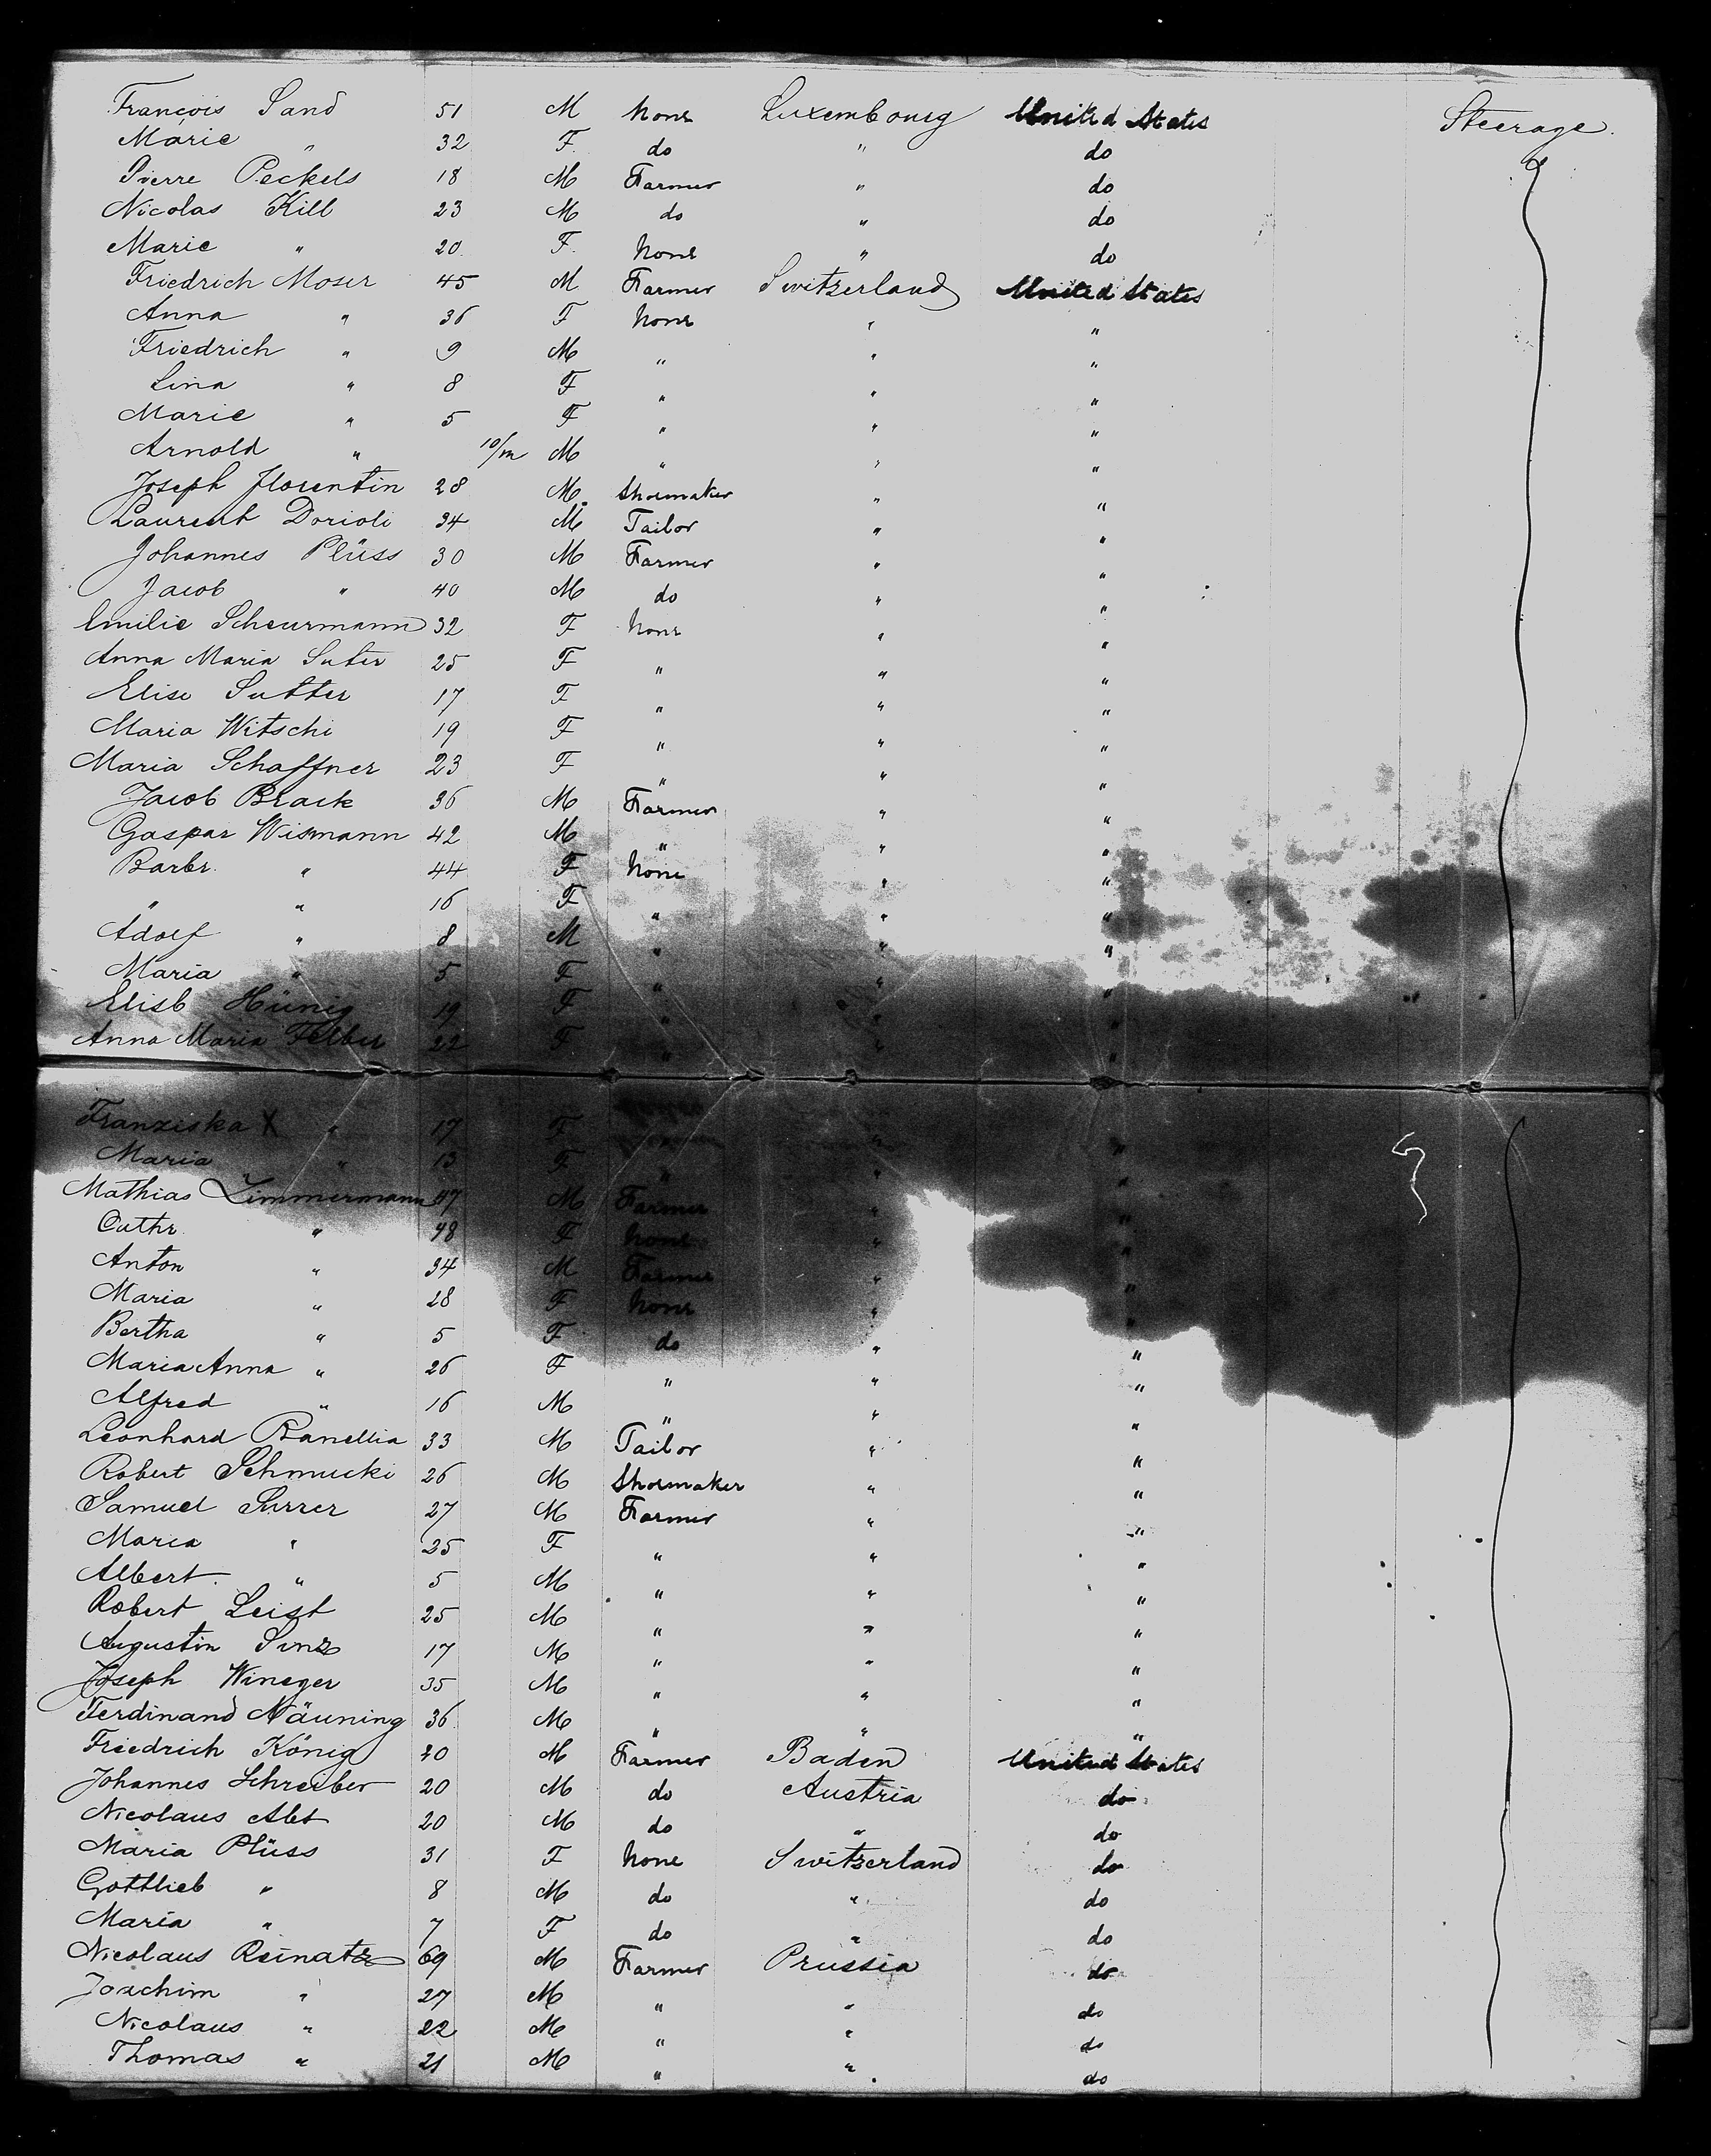 François Sand 51 M None Luxembourg United States Steerage.
Marie " 32 F do " do
Pierre Peckels 18 M Farmer " do
Nicolas Kill 23 M do " do
Marie " 20 F. None " do
Friedrich Moser 45 M Farmer Switzerland United States
Anna " 36 F None " "
Friedrich " 9 M " " "
Lina " 8 F " " "
Marie " 5 F " " "
Arnold " 10/m M " " "
Joseph Florentin 28 M. Shoemaker " "
Laurent Dorioli 34 M Tailor " "
Johannes Plüss 30 M Farmer " "
Jacob " 40 M do " "
Emilie Scheurmann 32 F None " "
Anna Maria Suter 25 F " " "
Elise Sutter 17 F " " "
Maria Witschi 19 F " " "
Maria Schaffner 23 F " " "
Jacob Brack 36 M Farmer " "
Gaspar Wismann 42 M " " "
Barbr. " 44 F None " "
" " 16 F " " "
Adolf " 8 M " " "
Maria " 5 F " " "
Elisb Hünig 19 F " " "
Anna Maria Felber 22 F " " "
Franziska X " 17 F " "
Maria " 13 F " " "
Mathias Zimmermann 47 M Farmer " "
Cathr. " 48 F None " "
Anton " 34 M Farmer " "
Maria " 28 F None " "
Bertha " 5 F do " "
Maria Anna " 26 F " " "
Alfred " 16 M " " "
Leonhard Banellia 33 M Tailor " "
Robert Schmucki 26 M Shoemaker " "
Samuel Surrer 27 M Farmer " "
Maria " 25 F " " "
Albert " 5 M " " "
Robert Leist 25 M " " "
Augustin 17 M " " "
Joseph Wineger 35 M " " "
Ferdinand Näuning 36 M " " "
Friedrich König 20 M Farmer Baden United States
Johannes Schreiber 20 M do Austria do
Nicolaus Abt 20 M do " do
Maria Plüss 31 F None Switzerland do
Gottlieb " 8 M do " do
Maria " 7 F do " do
Nicolaus Reinatz 69 M Farmer Prussia do
Joachim " 27 M " " do
Nicolaus " 22 M " " do
Thomas " 21 M " " do